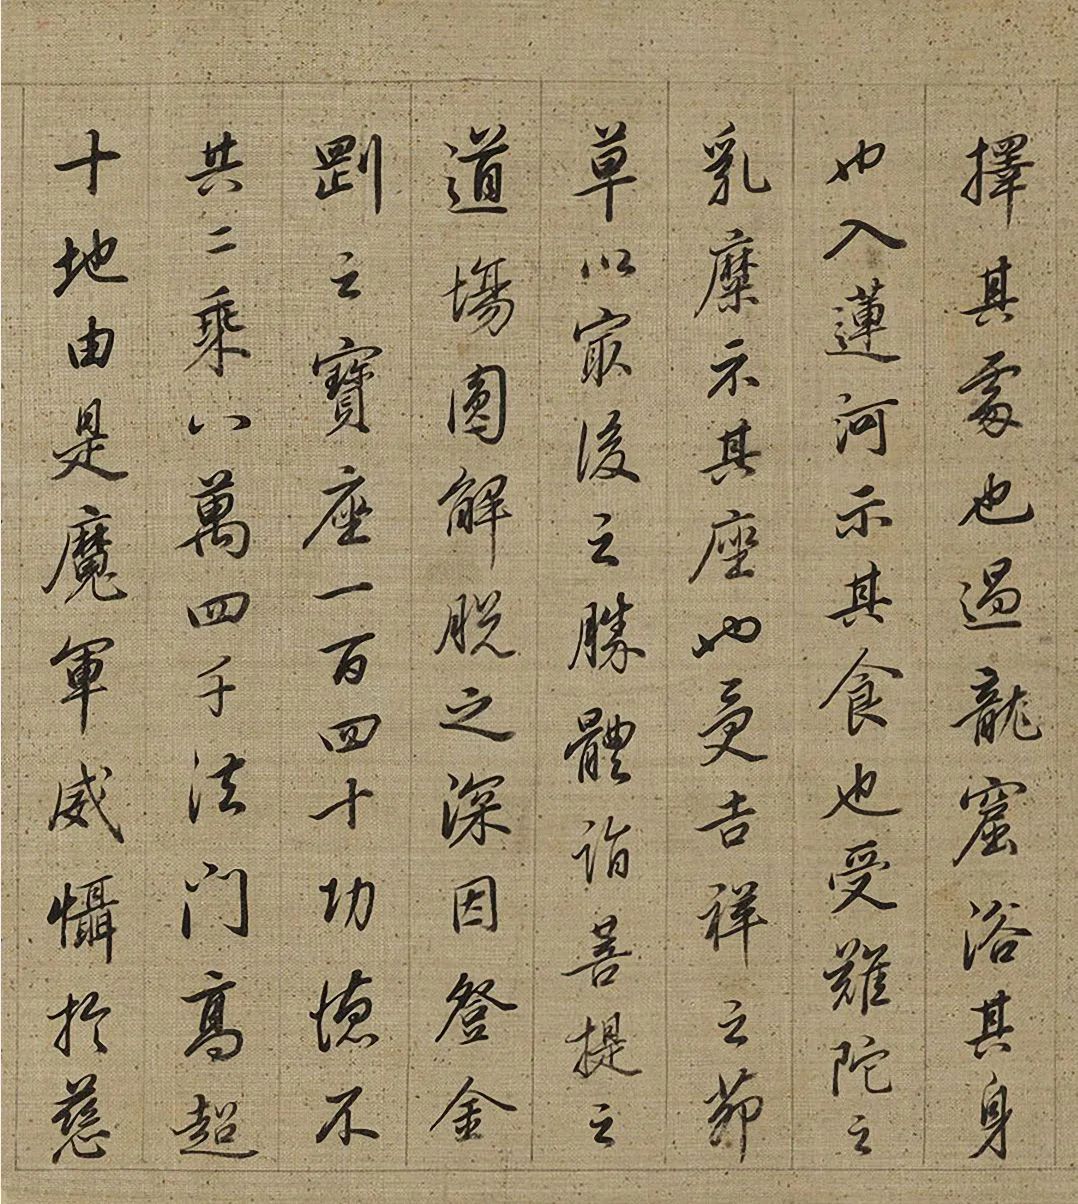 擇其處也過龍窟浴其身
也入蓮河示其食也受難陀之
乳糜示其座也受吉祥之茆
草以冣後之勝體詣菩提之
道塲圓解脫之深因登金
剛之寶座一百四十功德不
共二乘八萬四千法門高超
十地由是魔軍威懾於慈